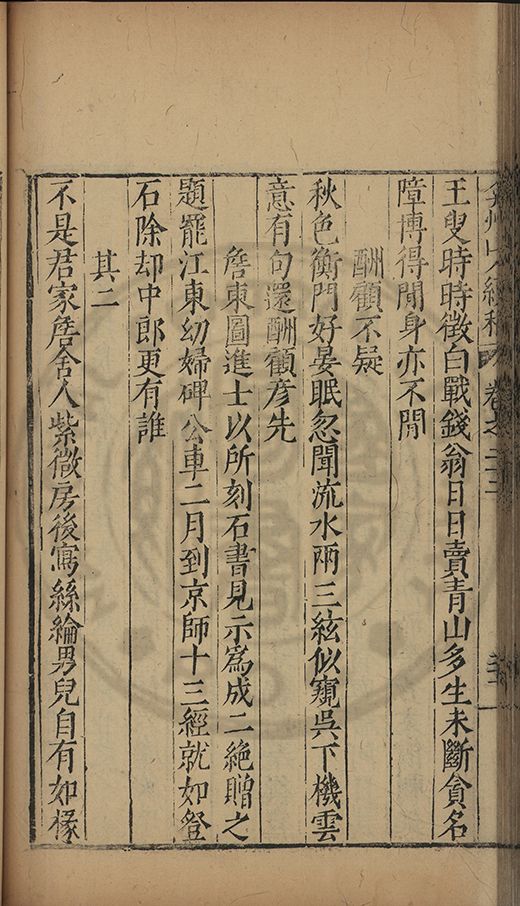 弇州山人續稿 卷之二十二
王叟時時徵白戰錢翁日日賣青山多生未斷貪名
障博得閒身亦不閒
酬顧不疑
秋色衡門好晏眠忽聞流水兩三絃似窺吳下機雲
意有句還酬顧彥先
詹東圖進士以所刻石書見示爲成二絕贈之
題罷江東幼婦碑公車二月到京師十三經就如登
石除却中郎更有誰
其二
不是君家詹舍人紫薇房後寫絲綸男兒自有如椽